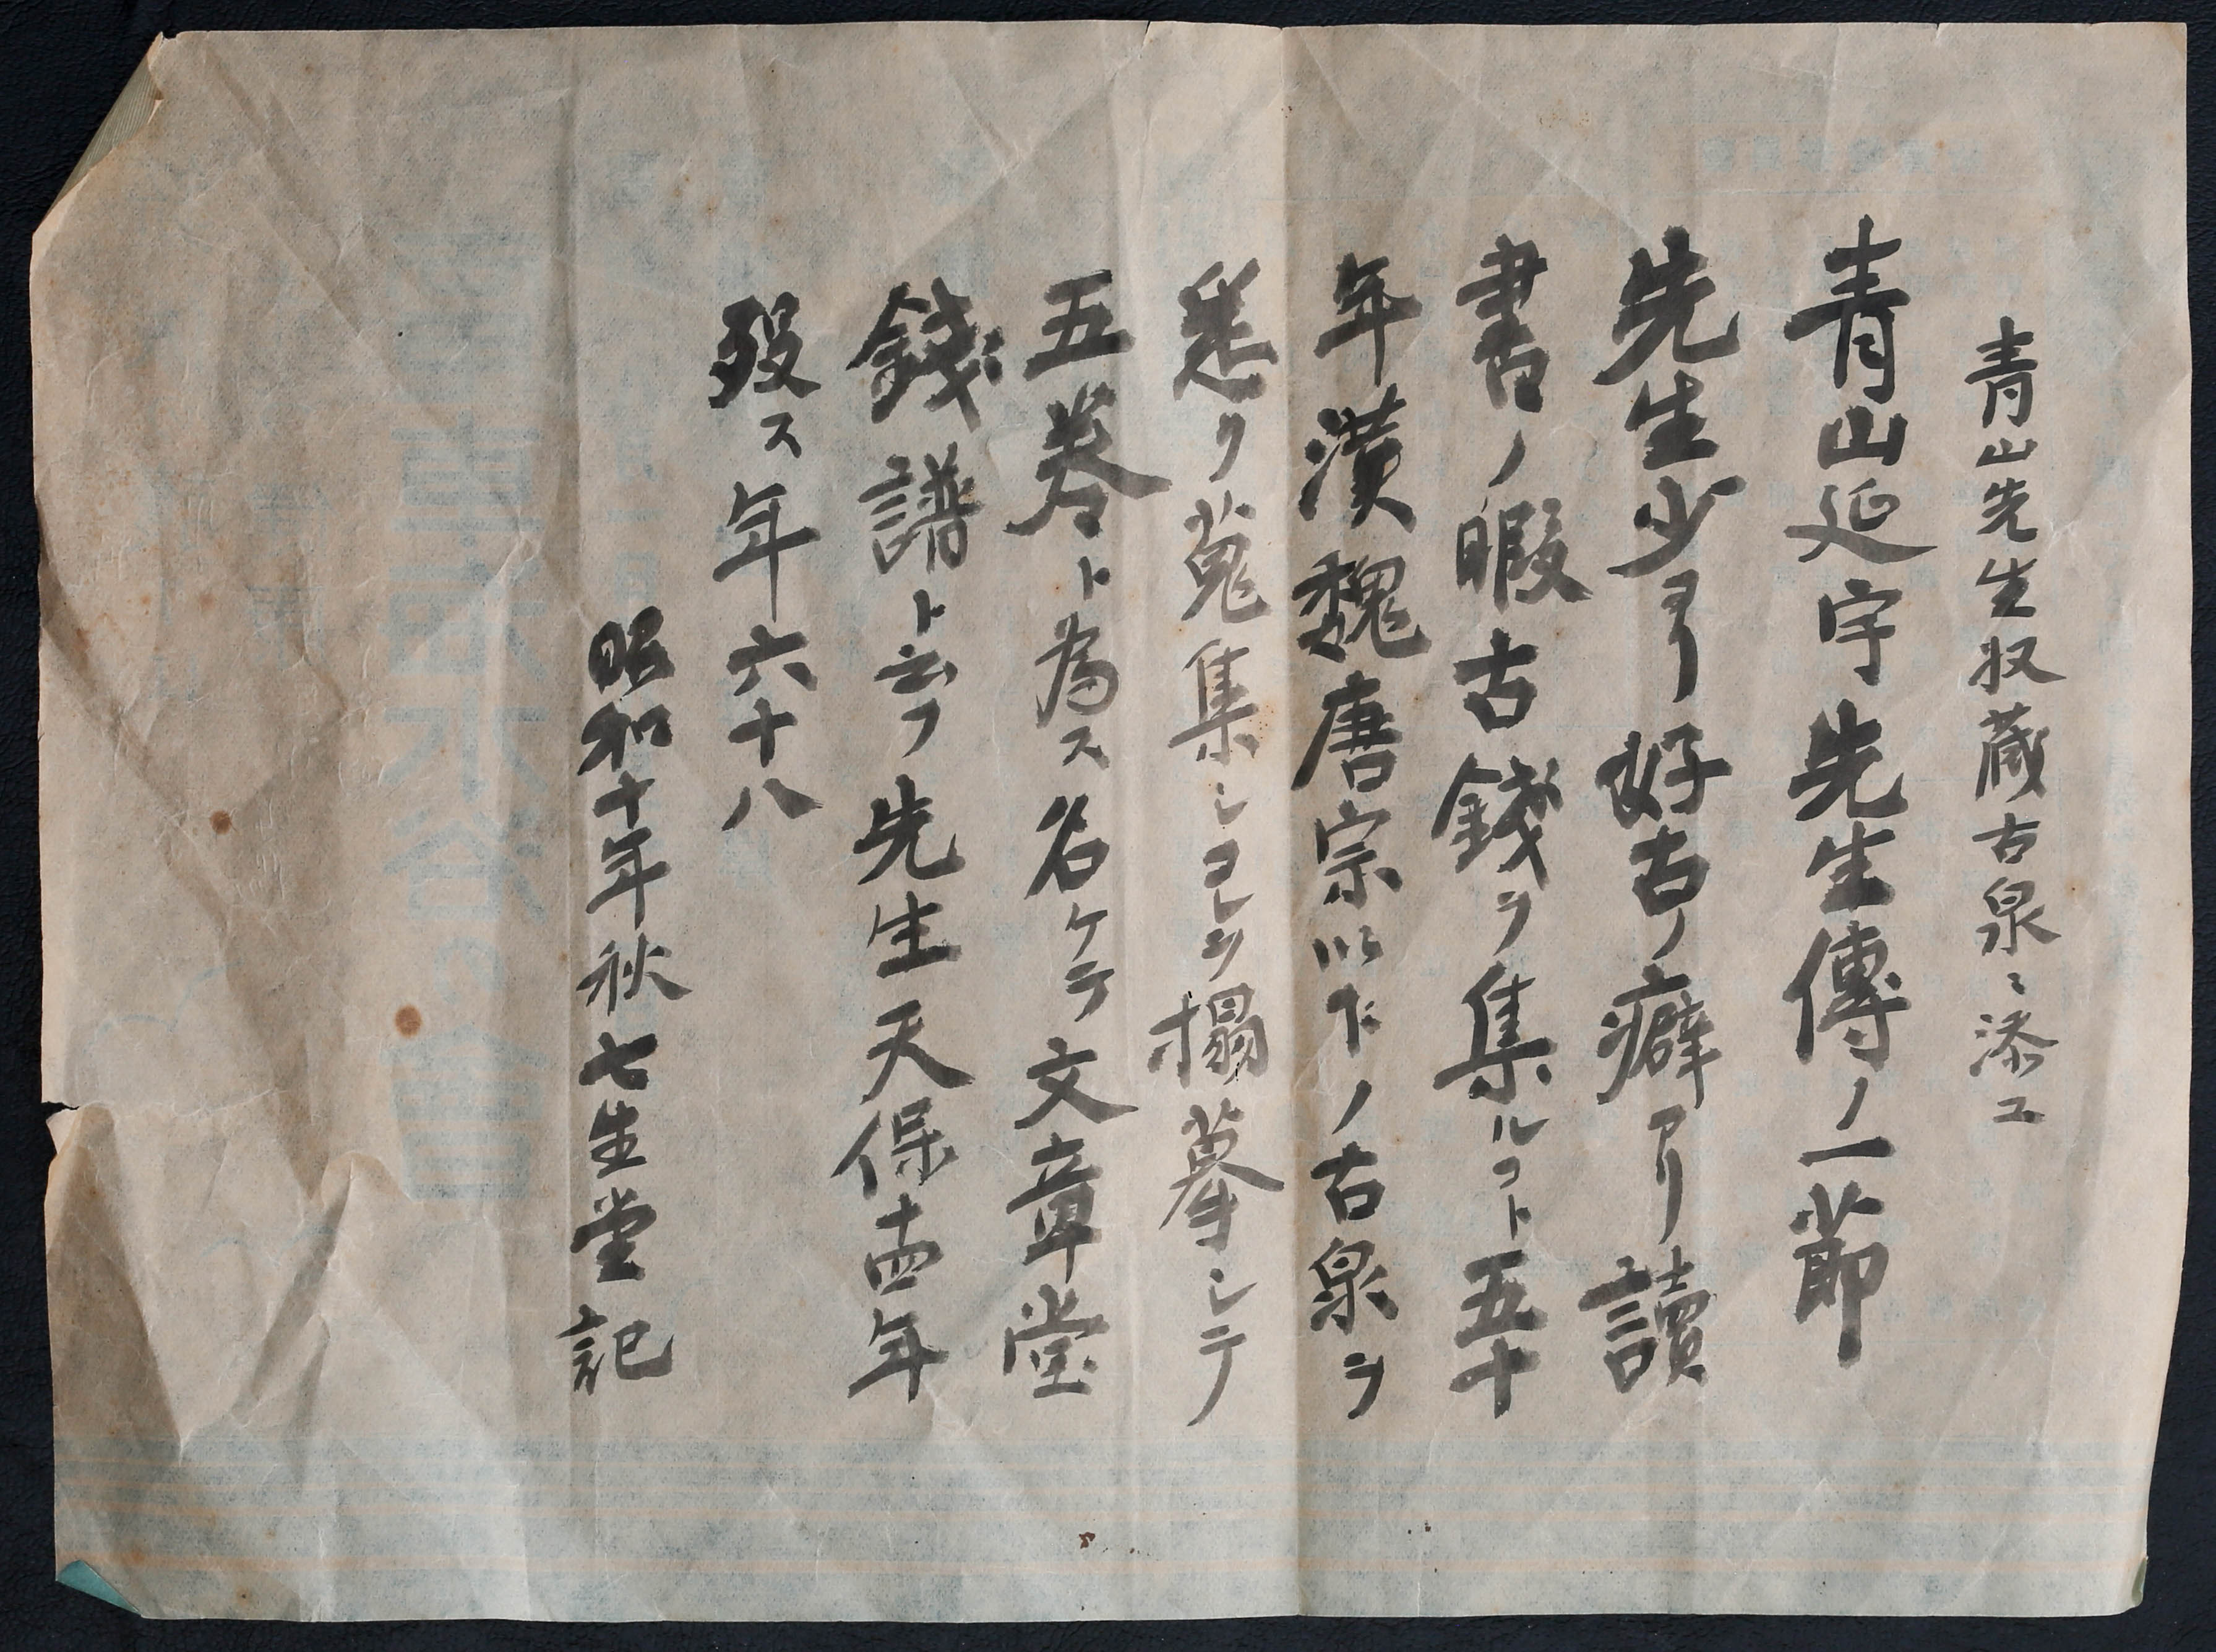 青山先生収蔵古泉ニ添ユ
青山延宇先生傳ノ一節
先生少ヨリ好古ノ癖アリ讀
書ノ暇古錢ヲ集ルコト五十
年漢魏唐宗以下ノ古泉ヲ
悉ク蒐集シコレヲ搨摹シテ
五巻ト為ス名ケテ文章堂
錢譜ト云フ先生天保十四年
歿ス年六十八
昭和十年秋七生堂記